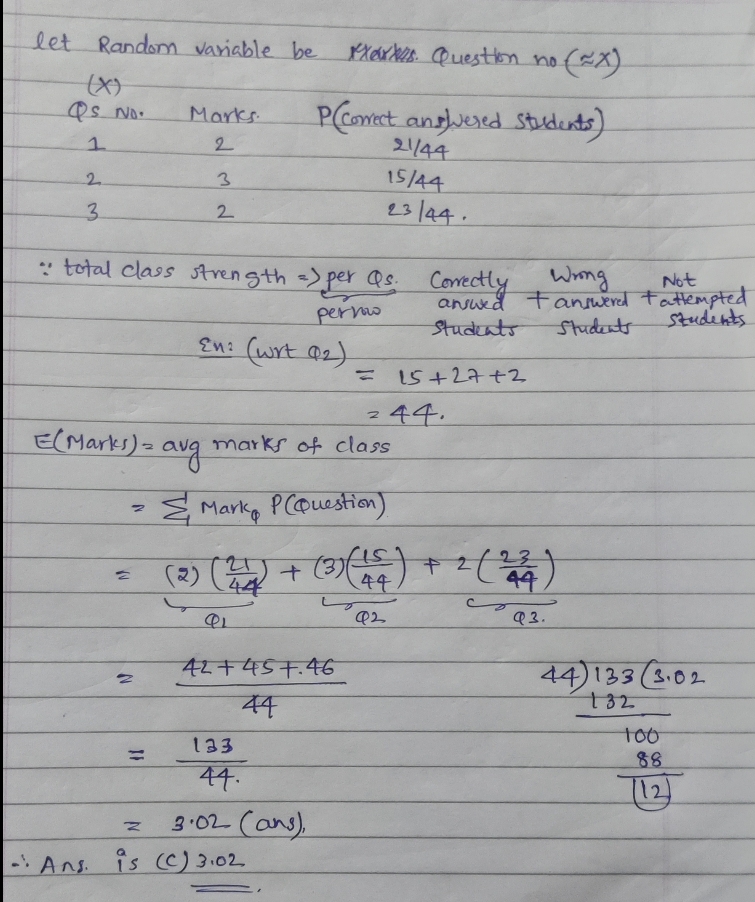 let Random variable be Question no (≈X)
(X)
Qs No. Marks. P(correct answered students)
1 2 21/44
2 3 15/44
3 2 23/44.
∵ total class strength => per Qs. Correctly answed students + Wrong answered students + Not attempted students
per row
En: (wrt Q2)
= 15+27+2
= 44.
E(Marks) = avg marks of class
= Σ Mark_Q P(Question)
= (2)(21/44) + (3)(15/44) + 2(23/44)
Q1 Q2 Q3.
= 42+45+.46 / 44
44)133(3.02
132
100
88
12
= 133/44.
= 3.02 (ans),
∴ Ans. is (C) 3.02